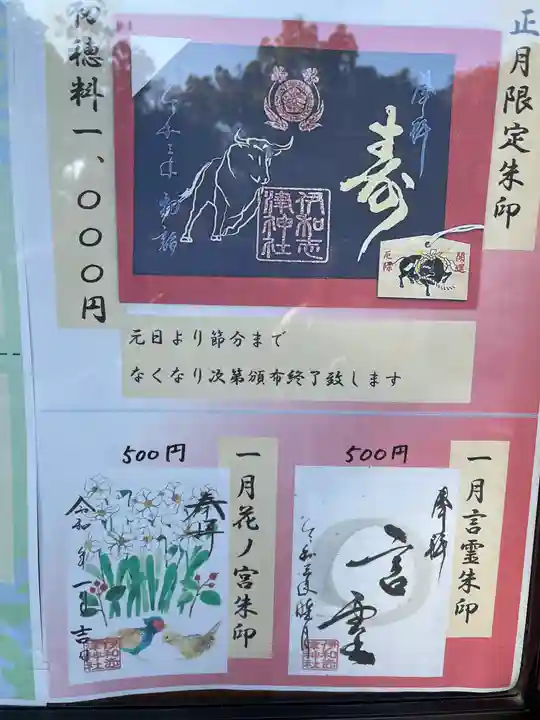 正月限定朱印
初穂料一、〇〇〇円
奉拝
寿
伊和志
津神社
開運
厄除
元日より節分まで
なくなり次第頒布終了致します
一月言霊朱印
500円
奉拝
言霊
令和三年睦月
伊和志
津神社
一月花ノ宮朱印
500円
奉拝
伊和志
津神社